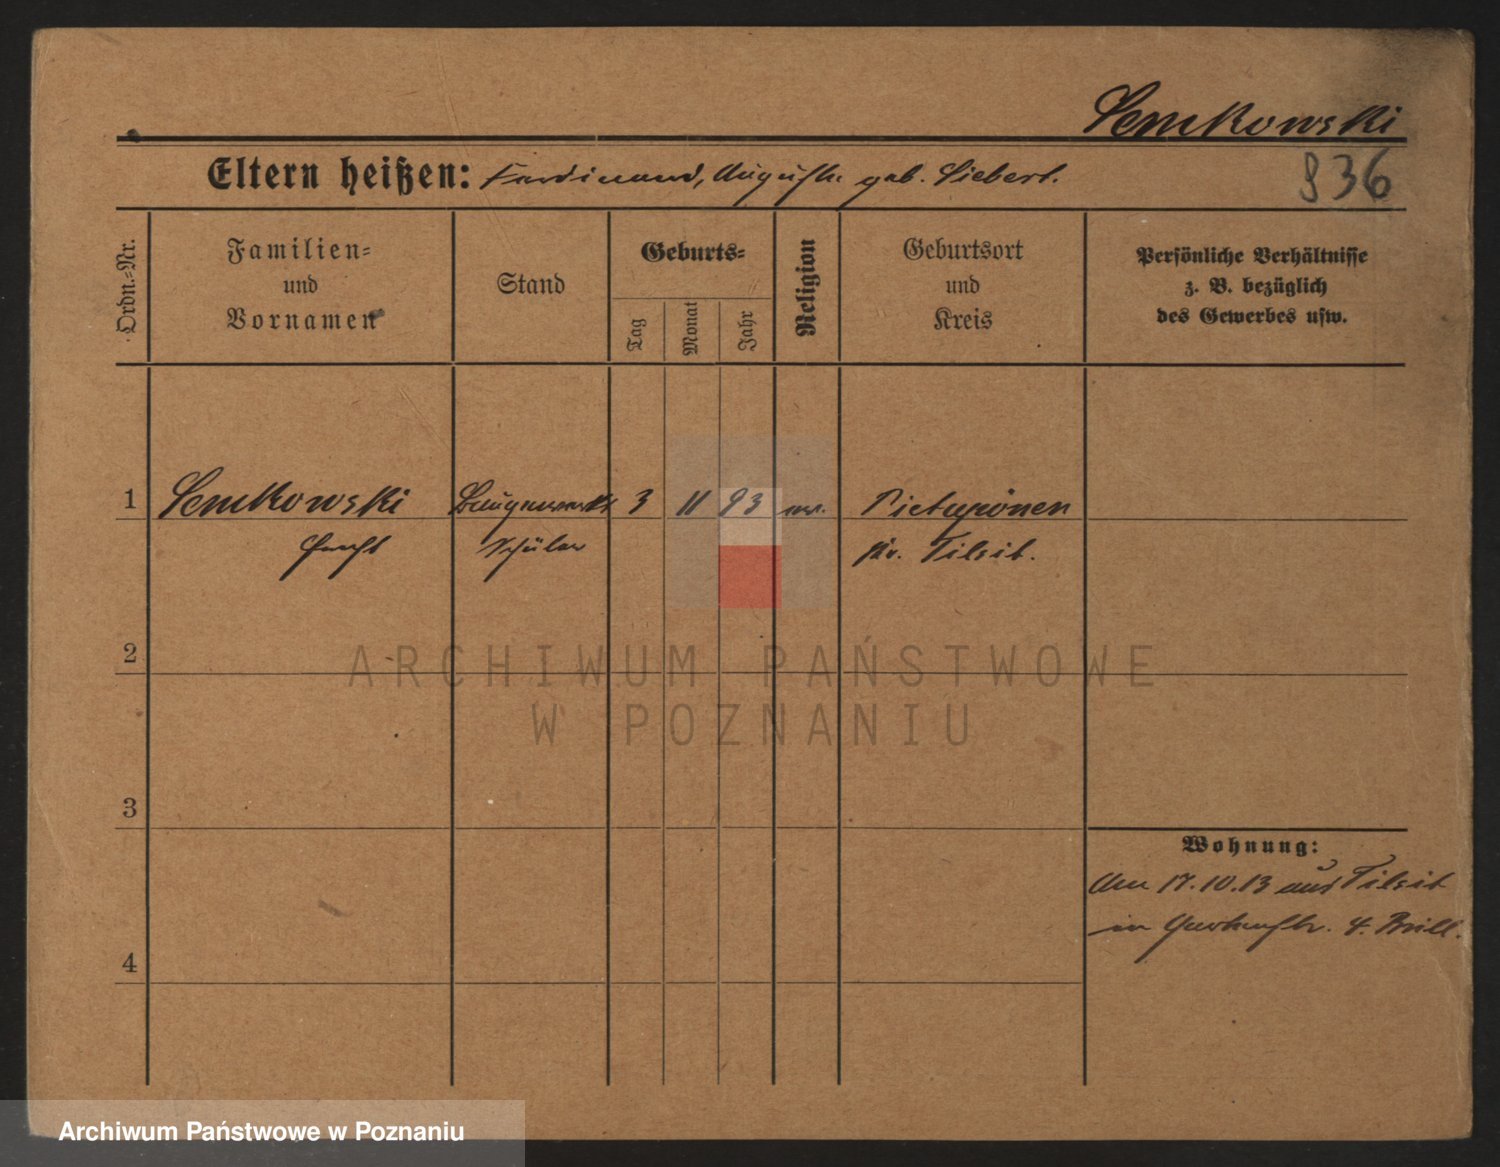 Lemkowski
Eltern heißen: Ferdinand, Auguste geb. Siebert.
836
Ordn.-Nr.
Familien-
und
Vornamen
Stand
Geburts-
Tag
Monat
Jahr
Religion
Geburtsort
und
Kreis
Persönliche Verhältnisse
z. B. bezüglich
des Gewerbes usw.
1 Lemkowski Baugewerks 3 11 93 ev. Pictupönen
Schüler Kr. Tilsit.
2
ARCHIWUM PAŃSTWOWE
W POZNANIU
3
Wohnung:
Am 17.10.13 aus Tilsit
in 4.
4
Archiwum Państwowe w Poznaniu